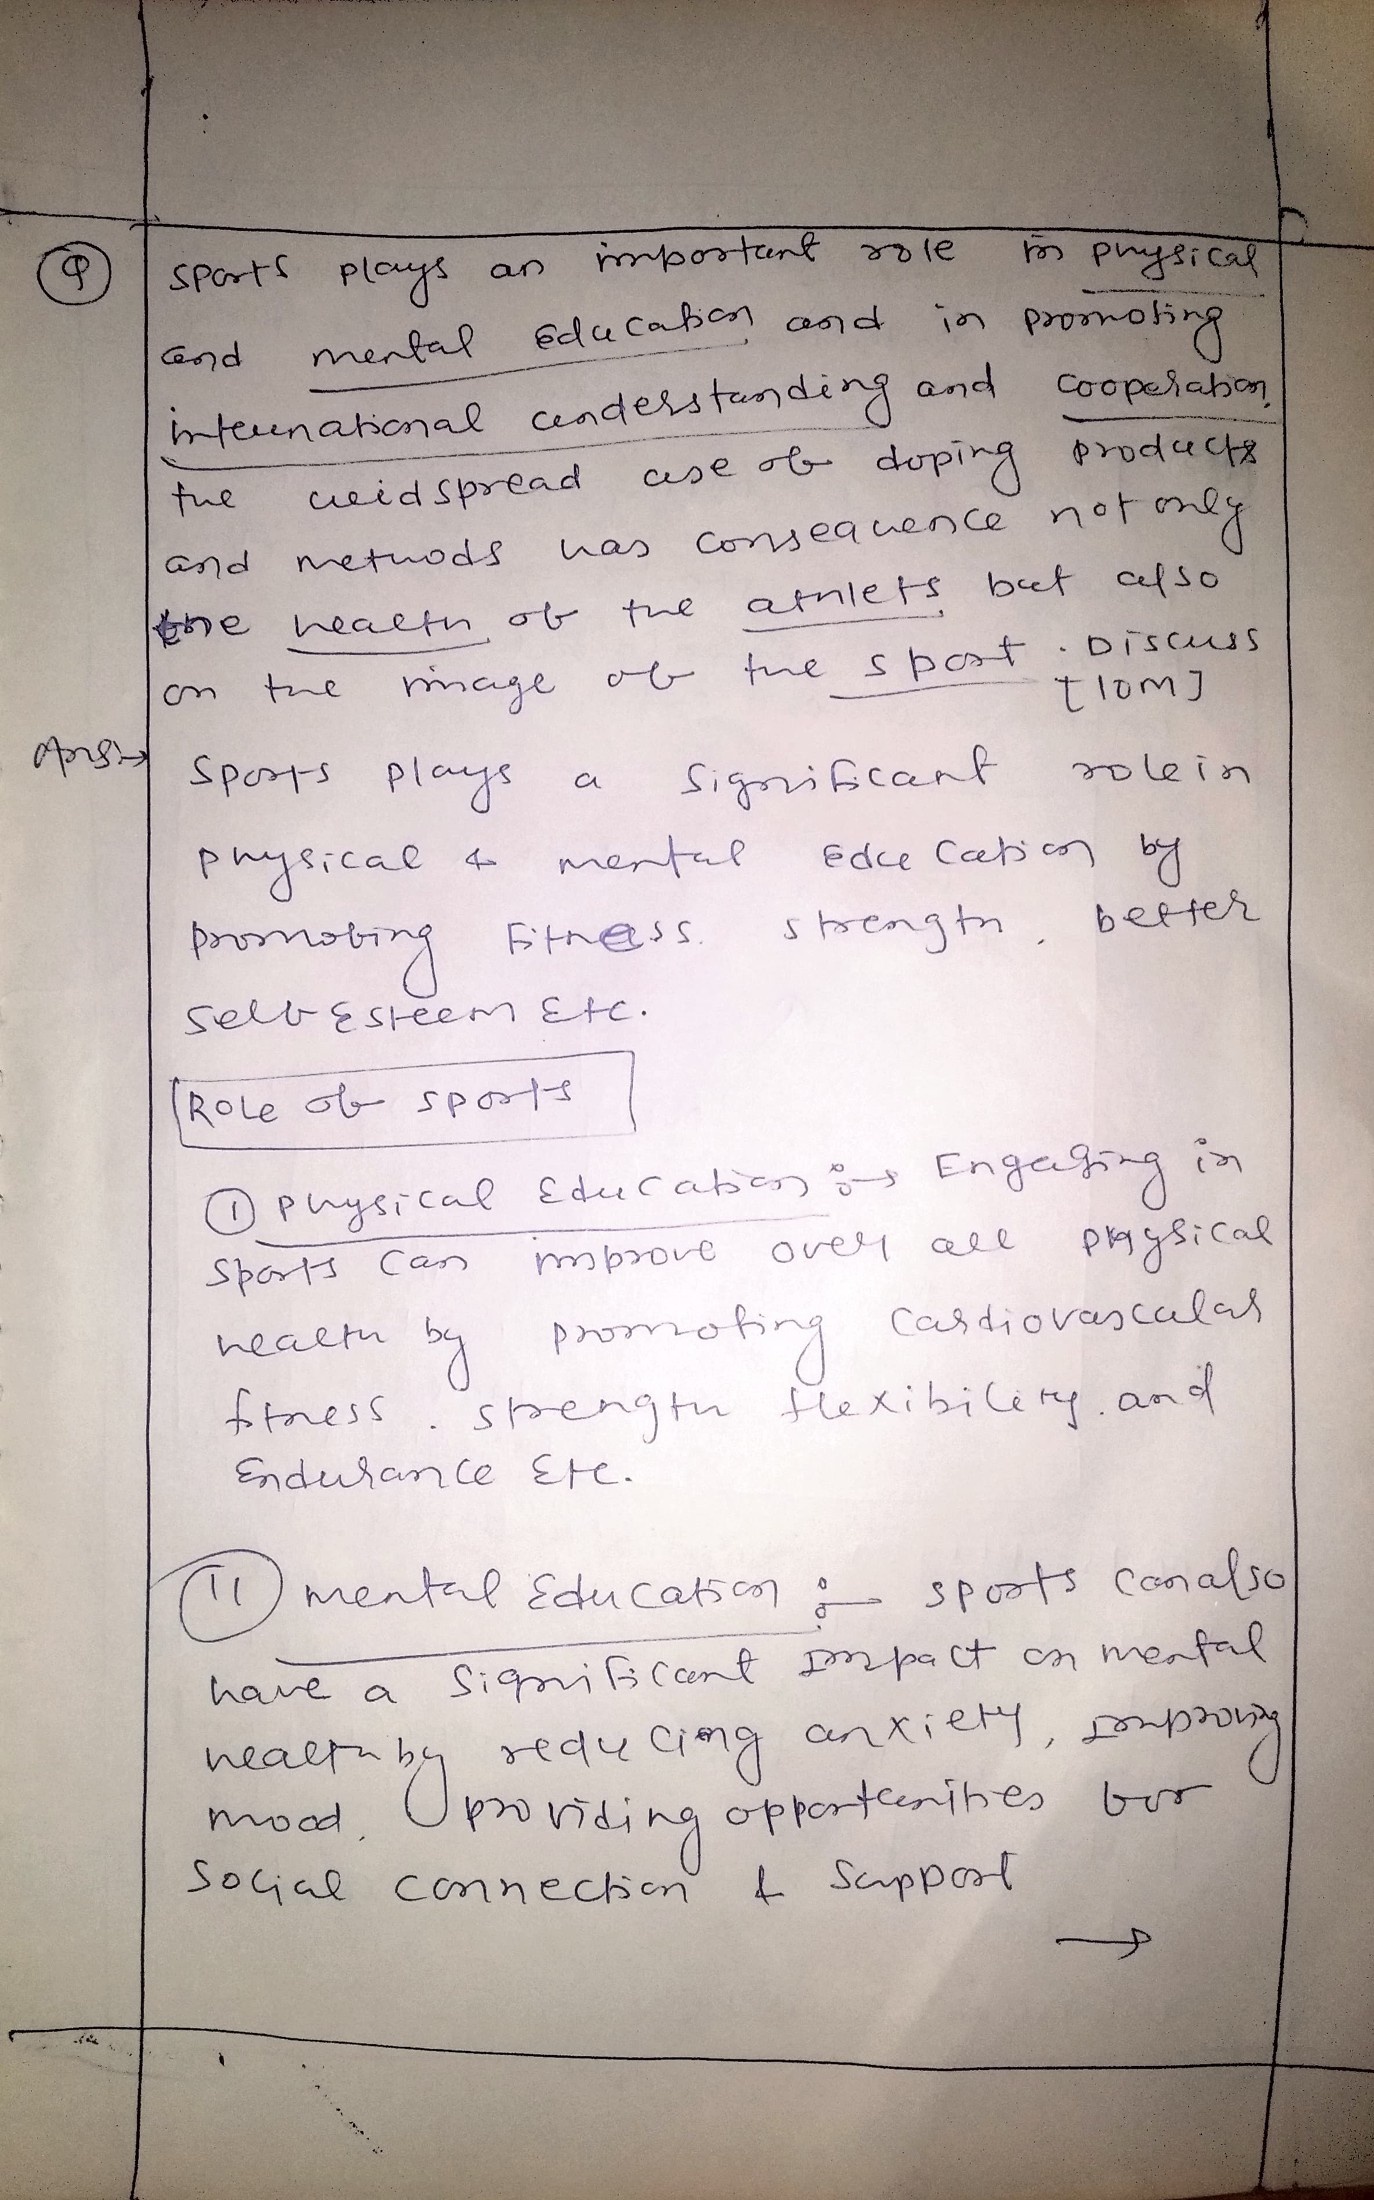 Q
sports plays an important role in physical
and mental education and in promoting
international understanding and cooperation.
the weidspread use of doping products
and methods has consequence not only
the health of the athlets, but also
on the image of the sport. Discuss
[10M]
Ans:→
Sports plays a significant role in
physical & mental education by
promoting fitness. strength, better
self Esteem Etc.
Role of sports
① physical Education :→ Engaging in
sports can improve over all physical
health by promoting cardiovascular
fitness. strength flexibility. and
Endurance Etc.
11 mental Education :— sports can also
have a significant Impact on mental
health by reducing anxiety, Improving
mood, providing opportunities for
social connection & support
→